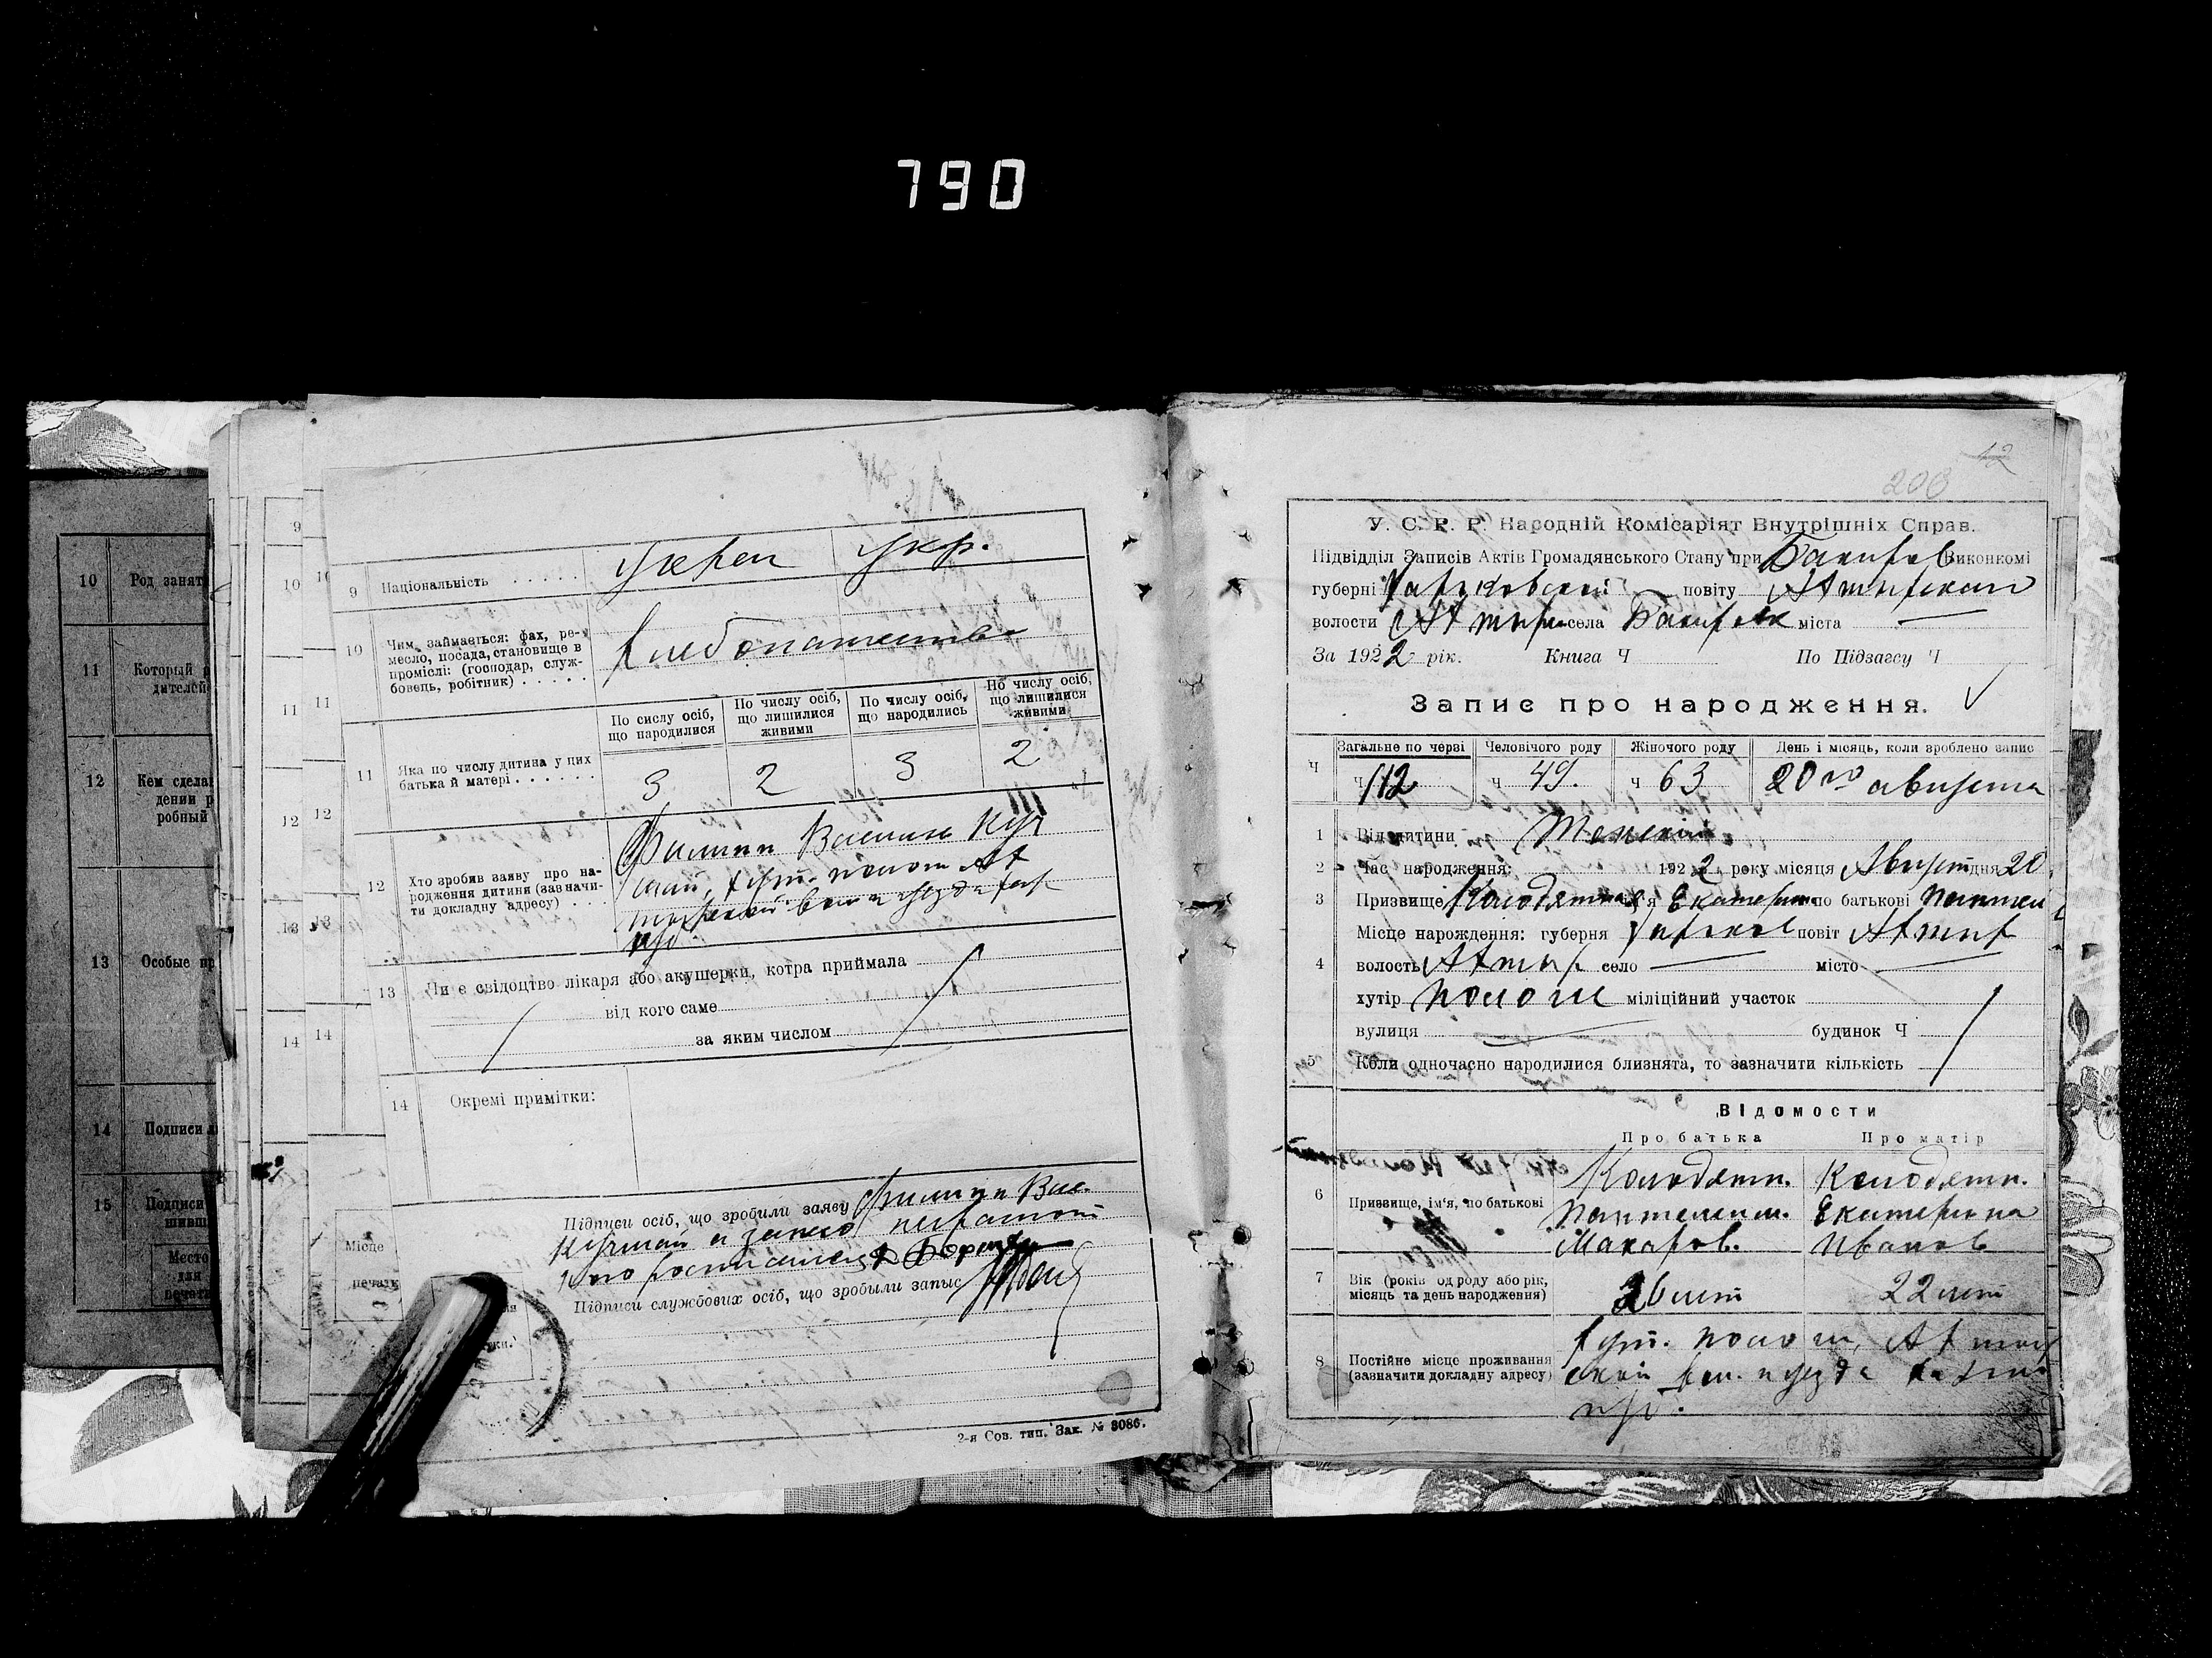 790
10 Род занят
11 Который р
дителей
12 Кем сдела
дении р
робный
13 Особые пр
14 Подписи д
15 Подписи
шивш
Место
для
печати
9
10
11
12
13
14
11
12
13
14
Місце
печати
9 Національність . . . . . Укр.
10 Чим займається: фах, ре-
месло, посада, становище в
проміслі: (господар, служ-
бовець, робітник) . . . . . Хлебопашество
11 Яка по числу дитина у цих
батька й матері . . . . . .
По сислу осіб,
що народилися
По числу осіб,
що лишилися
живими
По числу осіб,
що народились
По числу осіб,
що лишилися
живими
3 2 3 2
12 Хто зробив заяву про на-
родження дитини (зазначи-
ти докладну адресу) . . .
Филипп
хут.
13 Чи є свідоцтво лікаря або акушерки, котра приймала
від кого саме
за яким числом
14 Окремі примітки:
Підписи осіб, що зробили заяву Филипп Вас.
а за него неграмот
Підписи службових осіб, що зробили запыс
2-я Сов. тип. Зак. № 3086.
12
206
У. С. Р. Р. Народній Комісаріят Внутрішніх Справ.
Підвідділ Записів Актів Громадянського Стану при Бакиров Виконкомі
губерні Харьковской повіту Ахтырской
волости Ахтыр села Бакировк міста —
За 1922 рік. Книга Ч По Підзагсу Ч
Запис про народження.
Ч
Загальне по черзі Человічого роду Жіночого роду День і місяць, коли зроблено запис
ч 112 ч 49. ч 63 20го августа
1 Від дитини Женский
2 Час народження: 1922 року місяця Август дня 20
3 Призвище Колодяжная ім'я Екатерина по батькові Пантел
4 Місце нарождення: губерня Харьков повіт Ахтыр
волость Ахтыр село — місто —
хутір міліційний участок
вулиця — будинок Ч
5 Коли одночасно народилися близнята, то зазначити кількість
Відомости
Про батька Про матір
6 Призвище, ім'я, по батькові
Колодяжн. Колодяжн.
Пантелеим. Екатерина
Макаров. Иванов
7 Вік (років од роду або рік,
місяць та день народження) 26 лет 22 лет
8 Постійне місце проживання
(зазначити докладну адресу)
хут.
ской вол. и уезда